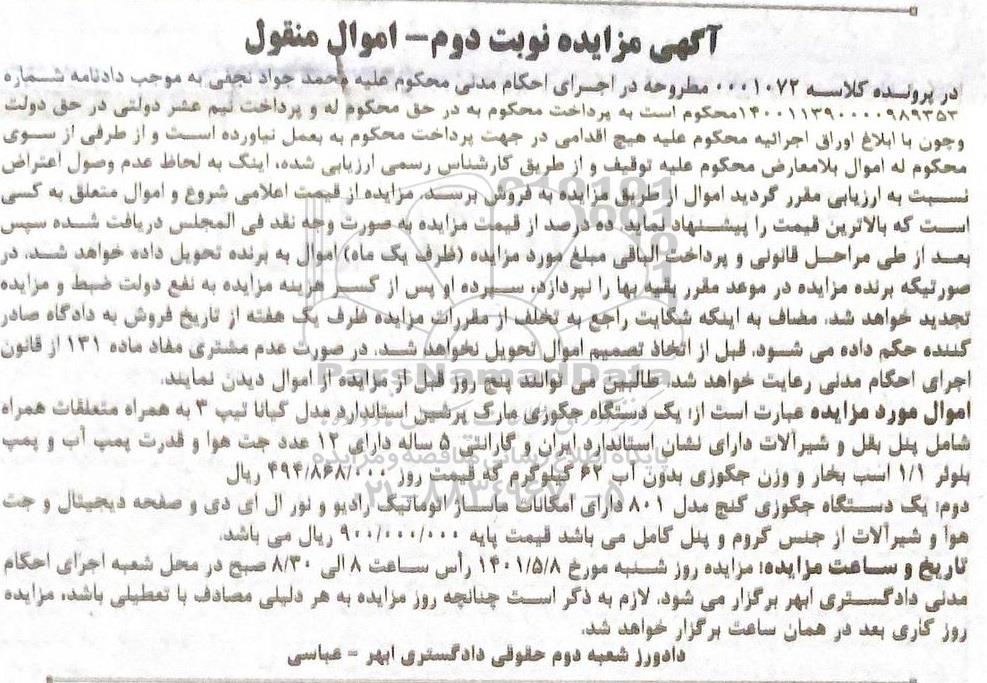 آگهی مزایده نوبت دوم – اموال منقول
در پرونده کلاسه ۰۰۰۱۰۷۲ مطروحه در اجرای احکام مدنی محکوم علیه محمد جواد نجفی به موجب دادنامه شماره
۱۴۰۰۱۱۳۹۰۰۰۰۹۸۹۳۵۳محکوم است به پرداخت محکوم به در حق محکوم له و پرداخت نیم عشر دولتی در حق دولت
وچون با ابلاغ اوراق اجرائیه محکوم علیه هیچ اقدامی در جهت پرداخت محکوم به بعمل نیاورده است و از طرفی از سوی
محکوم له اموال بلامعارض محکوم علیه توقیف و از طریق کارشناس رسمی ارزیابی شده، اینک به لحاظ عدم وصول اعتراض
نسبت به ارزیابی مقرر گردید اموال از طریق مزایده به فروش برسد. مزایده از قیمت اعلامی شروع و اموال متعلق به کسی
است که بالاترین قیمت را پیشنهاد نماید. ده درصد از قیمت مزایده به صورت وجه نقد فی المجلس دریافت شده سپس
بعد از طی مراحل قانونی و پرداخت الباقی مبلغ مورد مزایده (ظرف یک ماه) اموال به برنده تحویل داده خواهد شد. در
صورتیکه برنده مزایده در موعد مقرر بقیه بها را نپردازد، سپرده او پس از کسر هزینه مزایده به نفع دولت ضبط و مزایده
تجدید خواهد شد. مضاف به اینکه شکایت راجع به تخلف از مقررات مزایده ظرف یک هفته از تاریخ فروش به دادگاه صادر
کننده حکم داده می شود. قبل از اتخاذ تصمیم اموال تحویل نخواهد شد. در صورت عدم مشتری مفاد ماده ۱۳۱ از قانون
اجرای احکام مدنی رعایت خواهد شد. طالبین می توانند پنج روز قبل از مزایده از اموال دیدن نمایند.
اموال مورد مزایده عبارت است از: یک دستگاه جکوزی مارک پرشین استاندارد مدل کیانا تیپ ۳ به همراه متعلقات همراه
شامل پنل بقل و شیرآلات دارای نشان استاندارد ایران و گارانتی ۵ ساله دارای ۱۲ عدد جت هوا و قدرت پمپ آب و پمپ
بلوئر ۱/۱ اسب بخار و وزن جکوزی بدون آب ۶۲ کیلوگرم کل قیمت روز ۴۹۴/۸۶۸/۰۰۰ ریال
دوم: یک دستگاه جکوزی گنج مدل ۸۰۱ دارای امکانات ماساژ اتوماتیک رادیو و نور ال ای دی و صفحه دیجیتال و جت
هوا و شیرآلات از جنس کروم و پنل کامل می باشد قیمت پایه ۹۰۰/۰۰۰/۰۰۰ ریال می باشد.
تاریخ و ساعت مزایده: مزایده روز شنبه مورخ ۱۴۰۱/۵/۸ رأس ساعت ۸ الی ۸/۳۰ صبح در محل شعبه اجرای احکام
مدنی دادگستری ابهر برگزار می شود. لازم به ذکر است چنانچه روز مزایده به هر دلیلی مصادف با تعطیلی باشد، مزایده
روز کاری بعد در همان ساعت برگزار خواهد شد.
دادورز شعبه دوم حقوقی دادگستری ابهر – عباسی
ParsNamadData
پایگاه اطلاع رسانی مناقصه و مزایده
۰۲۱-۸۸۳۴۹۶۷۰-۵